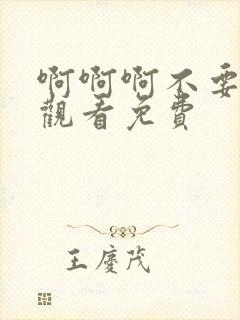 啊啊啊不要
觀看免費
王慶茂